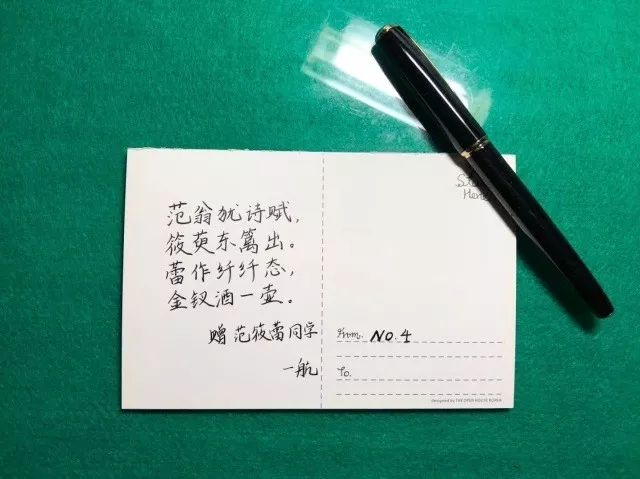 范翁犹诗赋，
筱萸东篱出。
蕾作纤纤态，
金钗酒一壶。
赠 范筱蕾同学
一航
From. NO.4
To.
designed by THE OPEN HOUSE KOREA